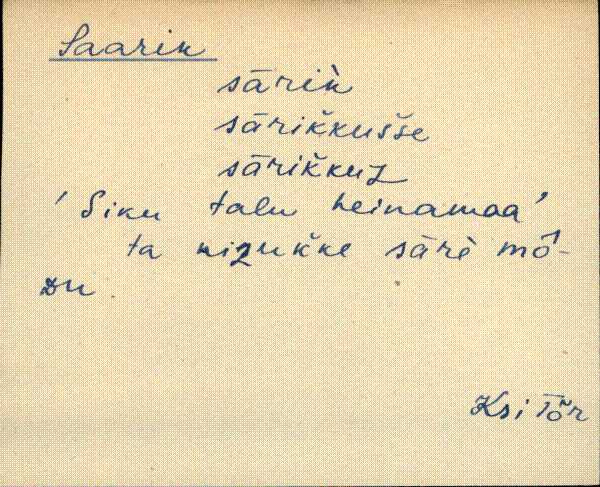 Saarik
sārik̀
sārik̆kušše
sārik̆kuz
' Siku talu heinamaa '
ta nizuk̆ke sārè mō-
ᴅu
Ksi Tõr